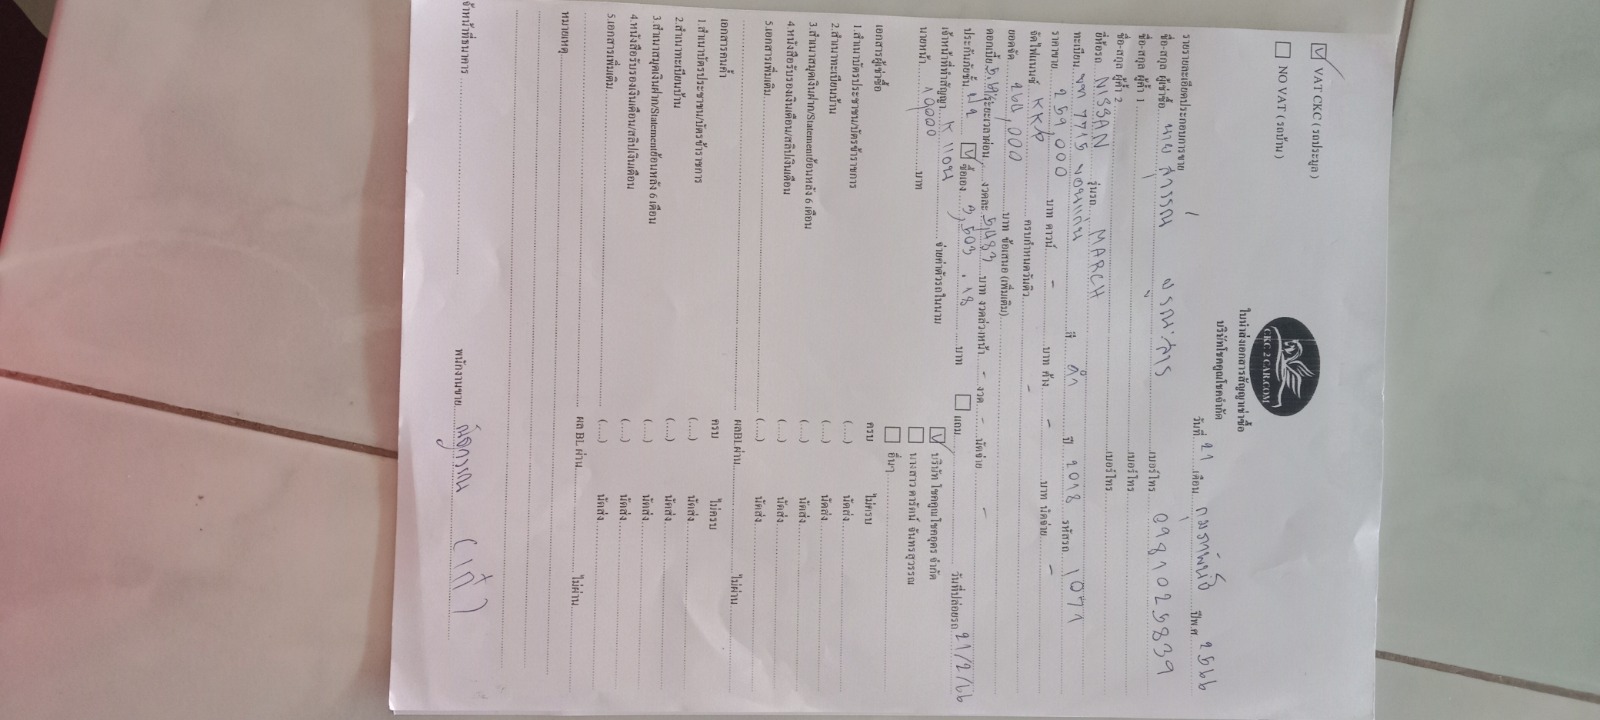 ☑ VAT CKC ( รถประมูล )
☐ NO VAT ( รถบ้าน )
CKC 2 CAR.COM
ใบนำส่งเอกสารสัญญาเช่าซื้อ
บริษัทโชคคูณโชคจำกัด
วันที่ 21 เดือน กุมภาพันธ์ ปีพ.ศ 2566
รายรายละเอียดประกอบการขาย
ชื่อ-สกุล ผู้เช่าซื้อ นาย เบอร์โทร 0981025839
ชื่อ-สกุล ผู้ค้ำ 1 เบอร์โทร
ชื่อ-สกุล ผู้ค้ำ 2 เบอร์โทร
ยี่ห้อรถ NISSAN รุ่นรถ MARCH
ทะเบียน ขอนแก่น สี ดำ ปี 2018 รหัสรถ 1071
ราคาขาย 259,000 บาท ดาวน์ - บาท ค้าง - บาท นัดจ่าย -
จัดไฟแนนซ์ KKP ครบกำหนดวันคิว -
ยอดจัด 260,000 บาท ข้อเสนอ (เพิ่มเติม)
ดอกเบี้ย ระยะเวลาผ่อน งวดละ 5,483 บาท งวดล่วงหน้า - งวด - นัดจ่าย -
ประกันภัยชั้น ☑ ซื้อเอง 3,503.18 บาท ☐ แถม วันที่ปล่อยรถ 21/2/66
เจ้าหน้าที่ทำสัญญา จ่ายค่าตัวรถในนาม ☑ บริษัท โชคคูณโชคอุดร จำกัด
นายหน้า 10000 บาท ☐ นางสาว ดารัตน์ จันทรสุวรรณ
☐ อื่นๆ
เอกสารผู้เช่าซื้อ ครบ ไม่ครบ
1.สำเนาบัตรประชาชน/บัตรข้าราชการ (....) นัดส่ง
2.สำเนาทะเบียนบ้าน (....) นัดส่ง
3.สำเนาสมุดเงินฝาก/Statementย้อนหลัง 6 เดือน (....) นัดส่ง
4.หนังสือรับรองเงินเดือน/สลิปเงินเดือน (....) นัดส่ง
5.เอกสารเพิ่มเติม (....) นัดส่ง
ผลBLผ่าน ไม่ผ่าน
เอกสารคนค้ำ ครบ ไม่ครบ
1.สำเนาบัตรประชาชน/บัตรข้าราชการ (....) นัดส่ง
2.สำเนาทะเบียนบ้าน (....) นัดส่ง
3.สำเนาสมุดเงินฝาก/Statementย้อนหลัง 6 เดือน (....) นัดส่ง
4.หนังสือรับรองเงินเดือน/สลิปเงินเดือน (....) นัดส่ง
5.เอกสารเพิ่มเติม (....) นัดส่ง
ผล BL ผ่าน ไม่ผ่าน
หมายเหตุ
เจ้าหน้าที่ธนาคาร พนักงานขาย